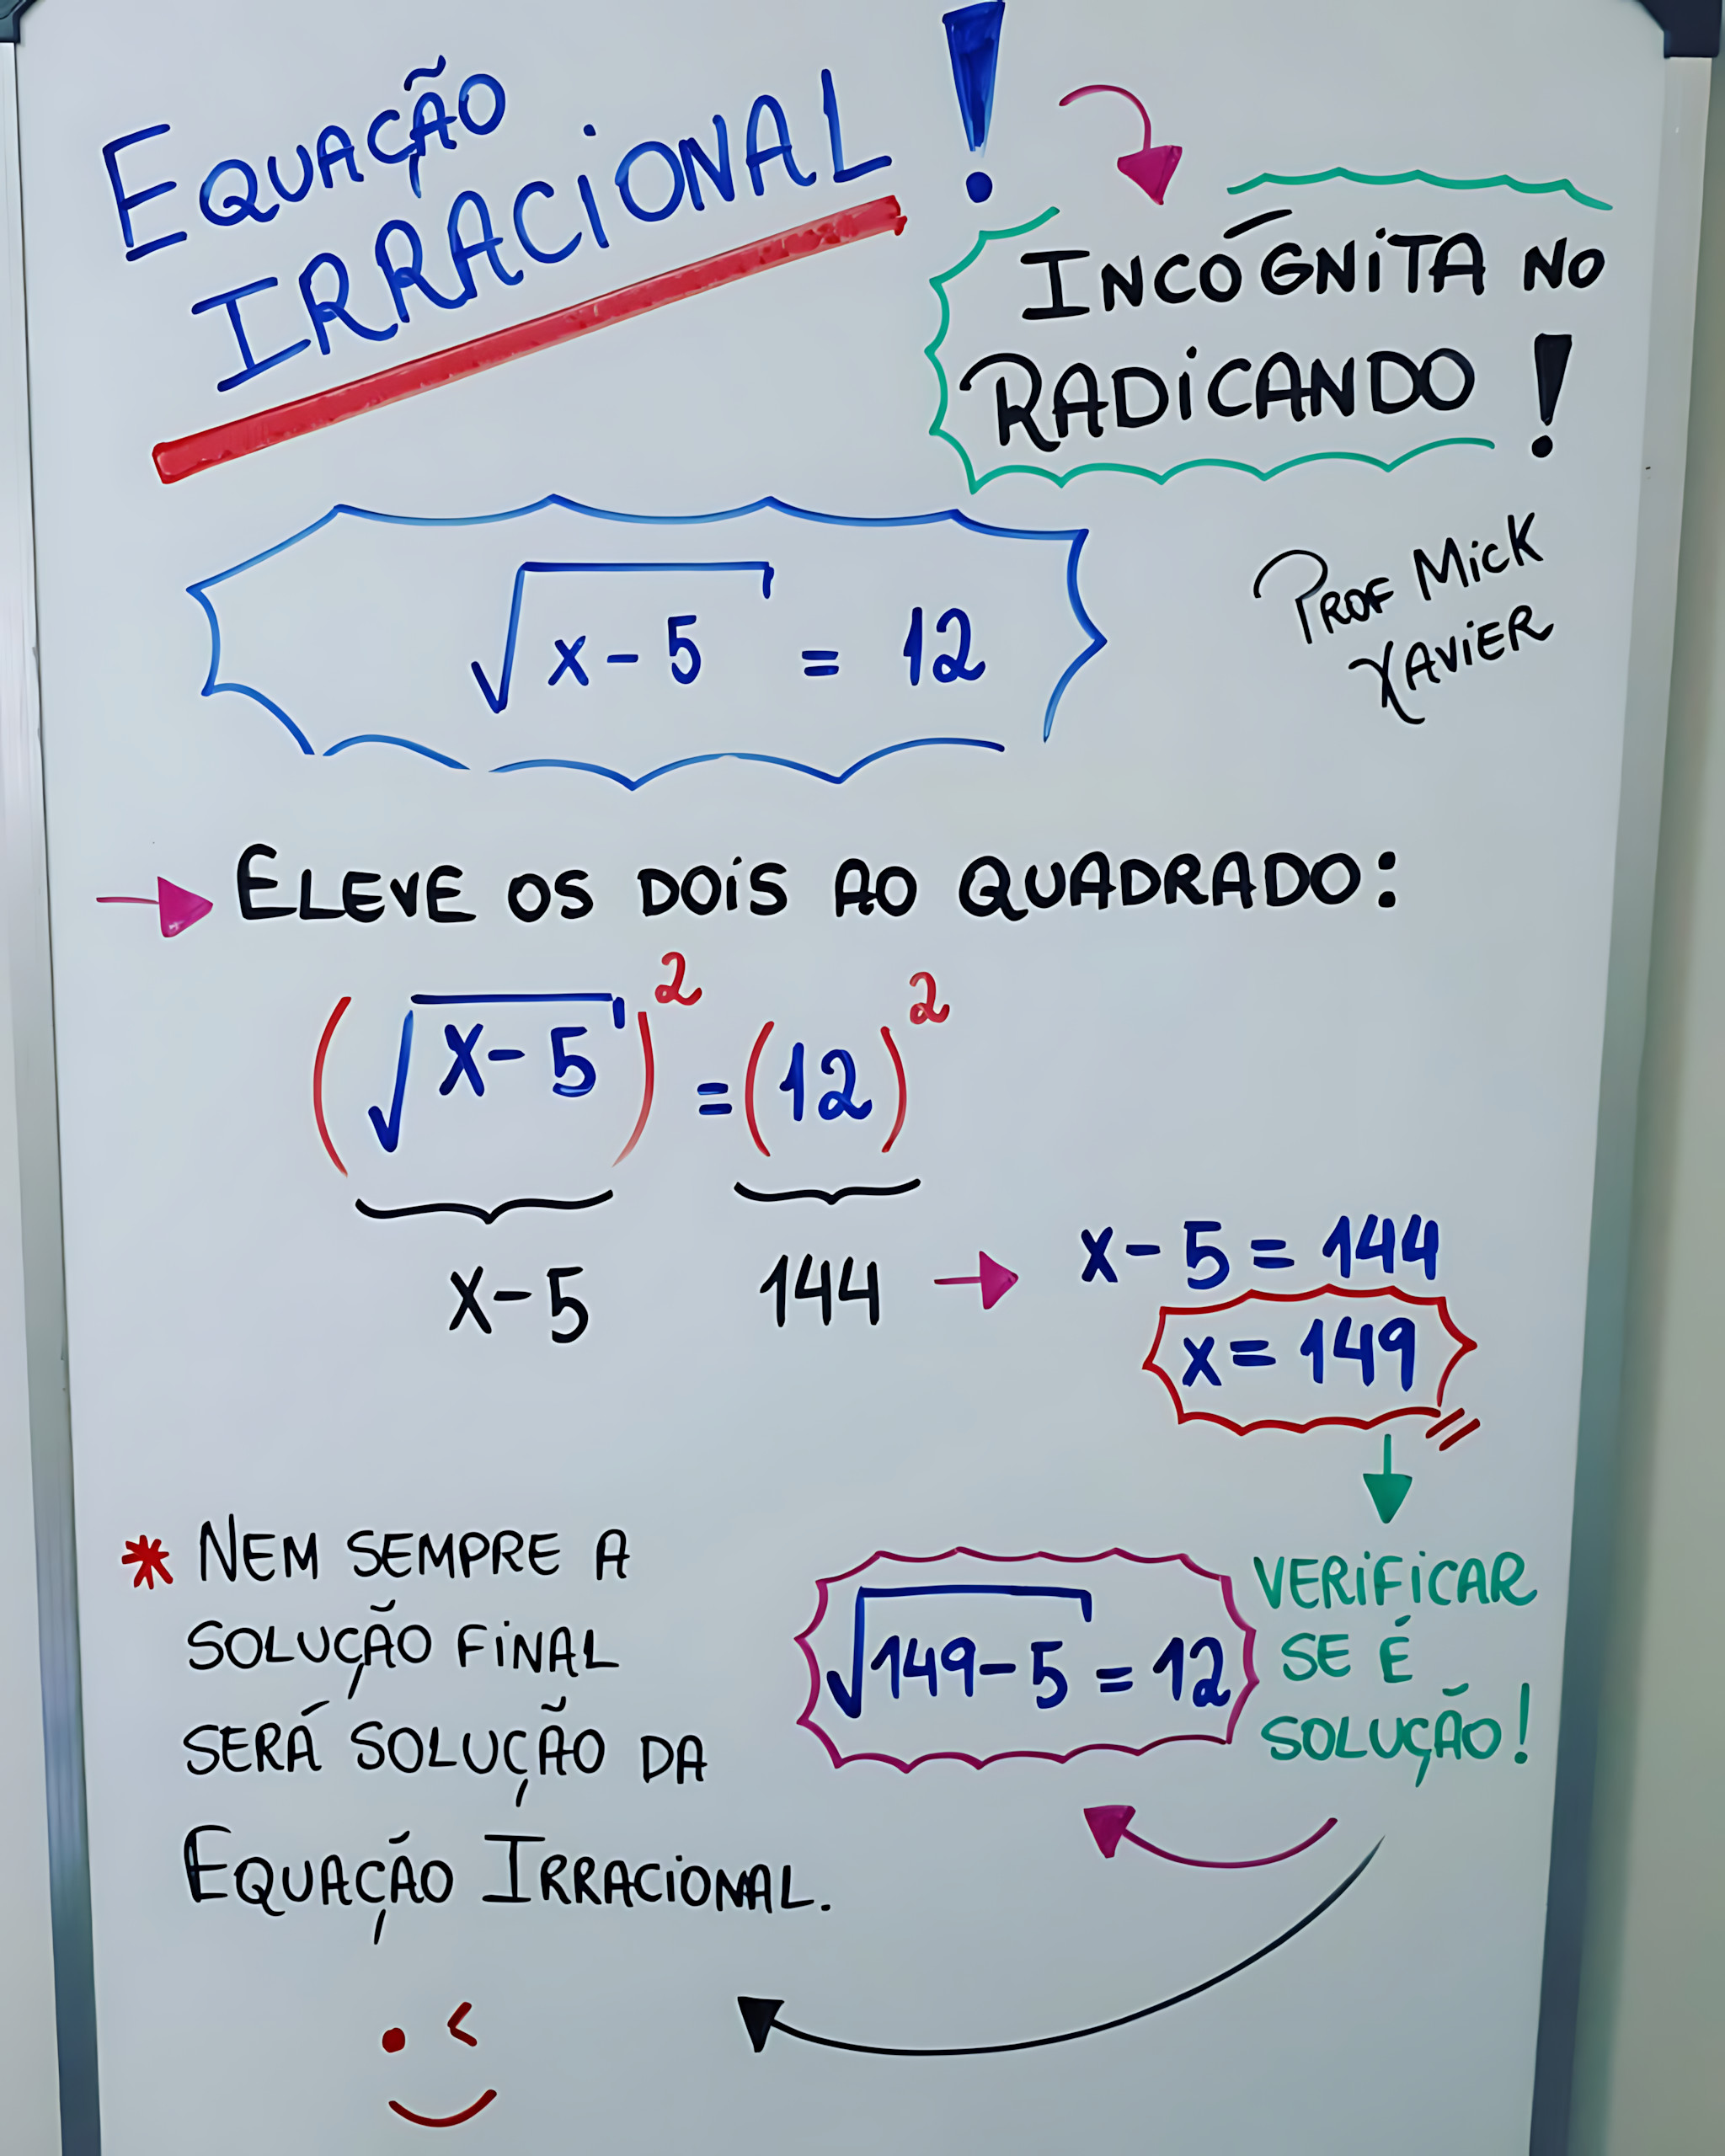 EQUAÇÃO
IRRACIONAL!
INCÓGNITA NO
RADICANDO!
√x-5 = 12
PROF MICK
XAVIER
ELEVE OS DOIS AO QUADRADO:
(√x-5)² = (12)²
x-5 144 → x-5=144
x=149
* NEM SEMPRE A
SOLUÇÃO FINAL
SERÁ SOLUÇÃO DA
EQUAÇÃO IRRACIONAL.
√149-5 = 12
VERIFICAR
SE É
SOLUÇÃO!